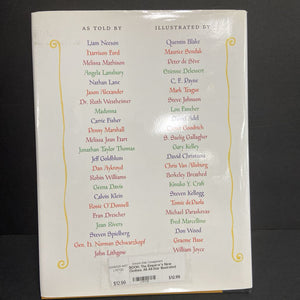 AS TOLD BY
Liam Neeson
Harrison Ford
Melissa Mathison
Angela Lansbury
Nathan Lane
Jason Alexander
Dr. Ruth Westheimer
Madonna
Carrie Fisher
Penny Marshall
Melissa Joan Hart
Jonathan Taylor Thomas
Jeff Goldblum
Dan Aykroyd
Robin Williams
Geena Davis
Calvin Klein
Rosie O'Donnell
Fran Drescher
Joan Rivers
Steven Spielberg
Gen. H. Norman Schwarzkopf
John Lithgow
ILLUSTRATED BY
Quentin Blake
Maurice Sendak
Peter de Sève
Etienne Delessert
C. F. Payne
Mark Teague
Steve Johnson
Lou Fancher
Adel
Goodrich
S. Saelig Gallagher
Gary Kelley
David Christiana
Chris Van Allsburg
Berkeley Breathed
Kinuko Y. Craft
Steven Kellogg
Tomie dePaola
Michael Paraskevas
Fred Marcellino
Don Wood
Graeme Base
William Joyce
BOOK: The Emperor's New
Clothes: All-Star Illustrated
$12.99
$12.99